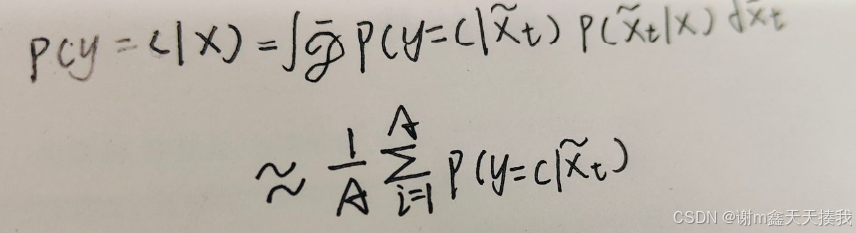 P(y=c|X) = ∫ P(y=c|x̃t) P(x̃t|x) dx̃t
≈ 1/A ∑_{i=1}^{A} P(y=c|x̃t)
CSDN @谢m鑫天天揍我